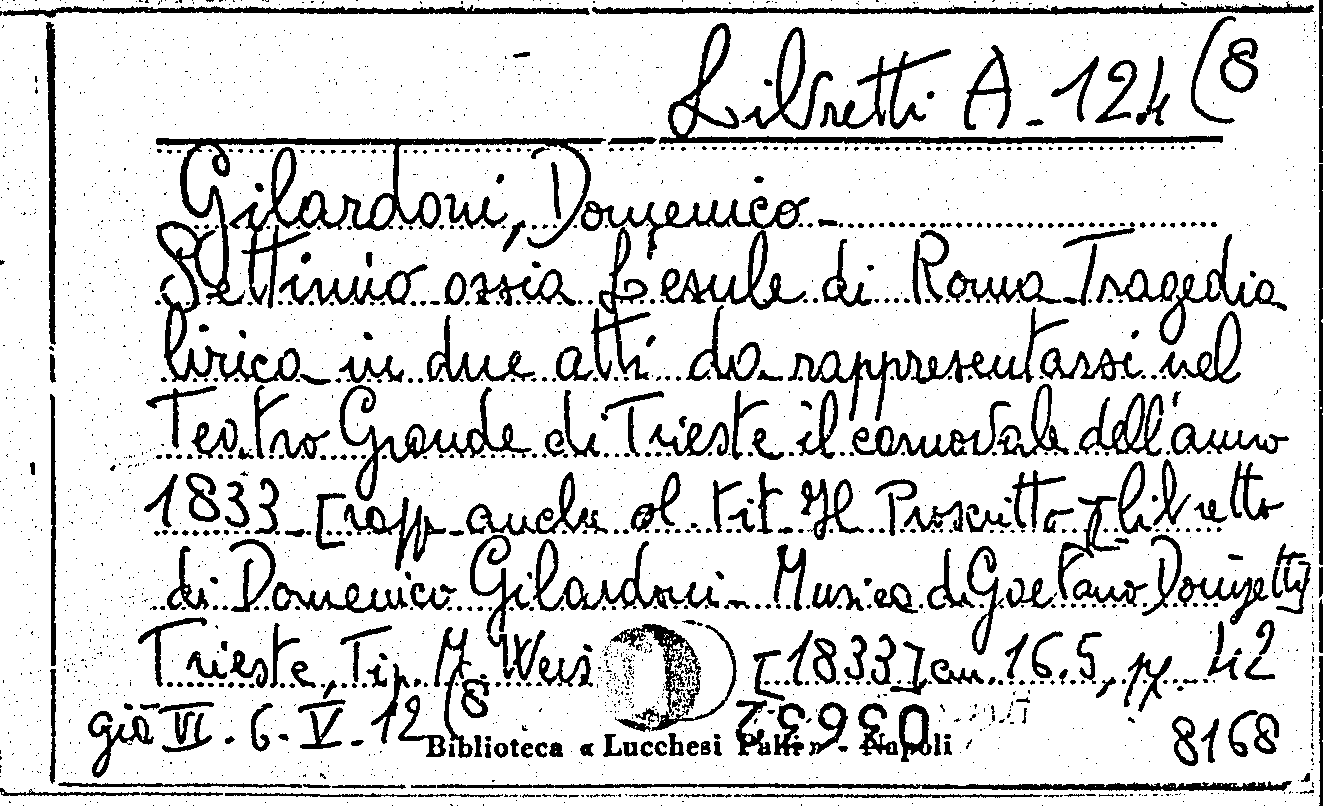 Libretti A-124(8
Gilardoni, Domenico-
Settimio ossia L'esule di Roma Tragedia
lirica in due atti da rappresentarsi nel
Teatro Grande di Trieste il carnovale dell'anno
1833-[rapp. anche al. tit. Il Proscritto] libretto
di Domenico Gilardoni- Musica di Gaetano Donizetti]
Trieste, Tip. M. Weis [1833] cm. 16.5, pp. 42
già VI. 6. V. 12(8 03632 8168
Biblioteca « Lucchesi Palli » - Napoli